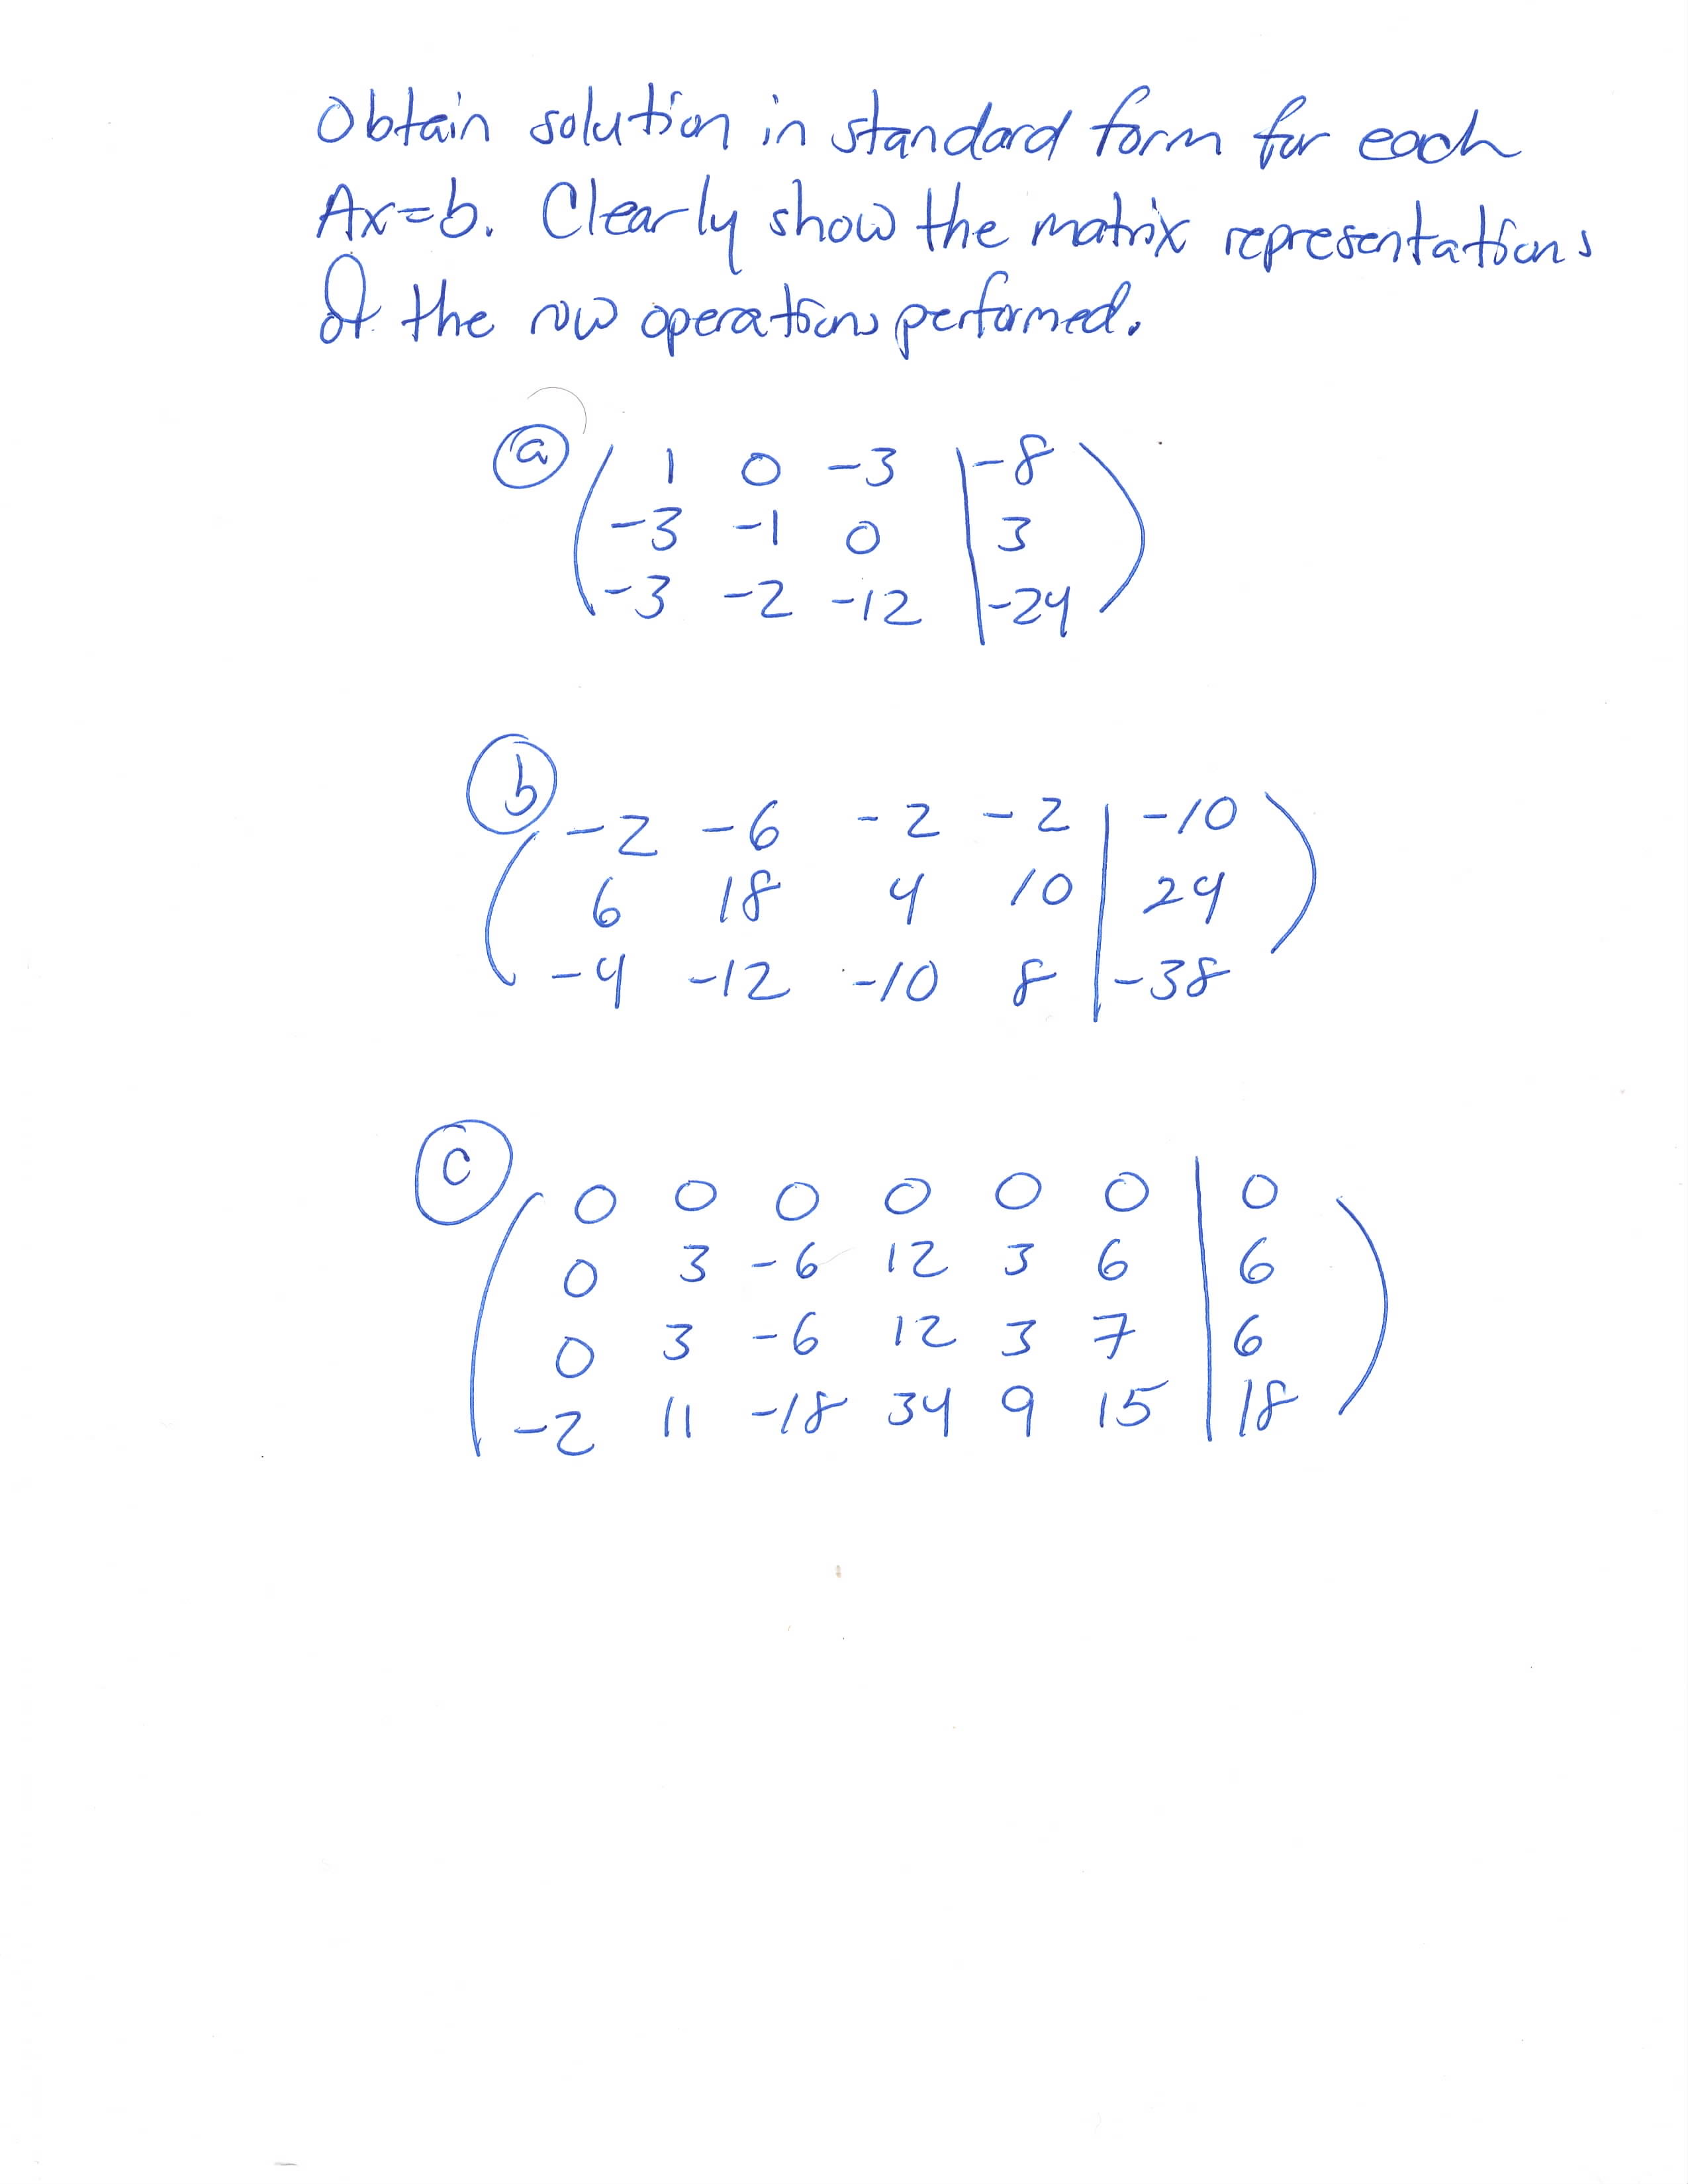 Obtain solution in standard form for each
Ax=b. Clearly show the matrix representations
of the row operations performed.
(a)
1 0 -3 | -8
-3 -1 0 | 3
-3 -2 -12 | -24
(b)
-2 -6 -2 -2 | -10
6 18 4 10 | 24
-4 -12 -10 8 | -38
(c)
0 0 0 0 0 0 | 0
0 3 -6 12 3 6 | 6
0 3 -6 12 3 7 | 6
-2 11 -18 34 9 15 | 18